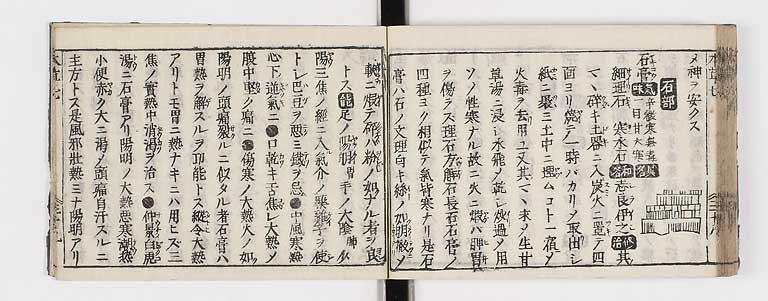 〆神ヲ安クス
石部
石膏 氣味 辛微寒無毒 一曰甘大寒 異名
細理石 寒水石 和名 志良伊之 修治 其
マヽ碎キ土器ニ入炭火ニ置テ四
面ヨリ燒テ一時バカリ〆取出シ
紙ニ裹ミ土中ニ埋ムコト一宿〆
火毒ヲ去用ユ又其マヽ末ノ生甘
草湯ニ浸シ水飛〆乾シ炒過〆用
ソノ性寒ナル故ニ火ニ煅ハ脾胃
ヲ傷ラス理石方解石長石石膏ノ
四種ヨク相似テ氣皆寒ナリ是石
膏ハ石ノ文理白キ絲ノ如明徹〆
軟ニ煨テ碎ハ粉ノ如ナル者ヲ良
トス 能 足ノ陽明手ノ太陰肺少
陽三焦ノ經ニ入氣分ノ藥雞子ヲ使
トレ巴豆ヲ惡ミ鐵ヲ忌●中風寒熱
心下逆氣ニ●口乾キ舌焦レ大熱〆
腹中堅ク痛ニ●傷寒ノ大熱火ノ如
陽明ノ頭痛裂ルニ似タル者石膏ハ
胃熱ヲ解スルヲ功能トス縱令大熱
アリトモ胃ニ熱ナキニハ用ヒズ三
焦ノ實熱中消渴ヲ治ス●仲景白虎
湯ニ石膏アリ陽明ノ大熱惡寒潮熱
小便赤ク大ニ渴〆頭痛自汗スルニ
主方トス是風邪壯熱ミナ陽明アリ